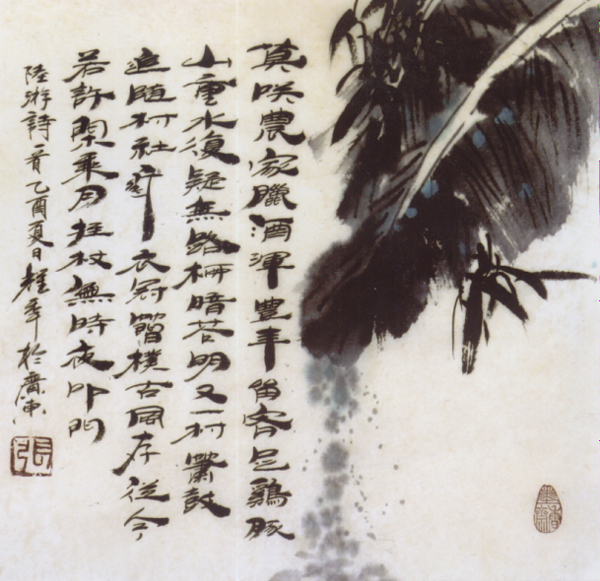 莫咲農家臘酒渾豐年留客足鷄豚
山重水復疑無路柳暗花明又一村簫鼓
追隨村社衣冠簡樸古風存從今
若許閑乘月拄杖無時夜叩門
陸游詩一首乙酉夏日於廣東
張